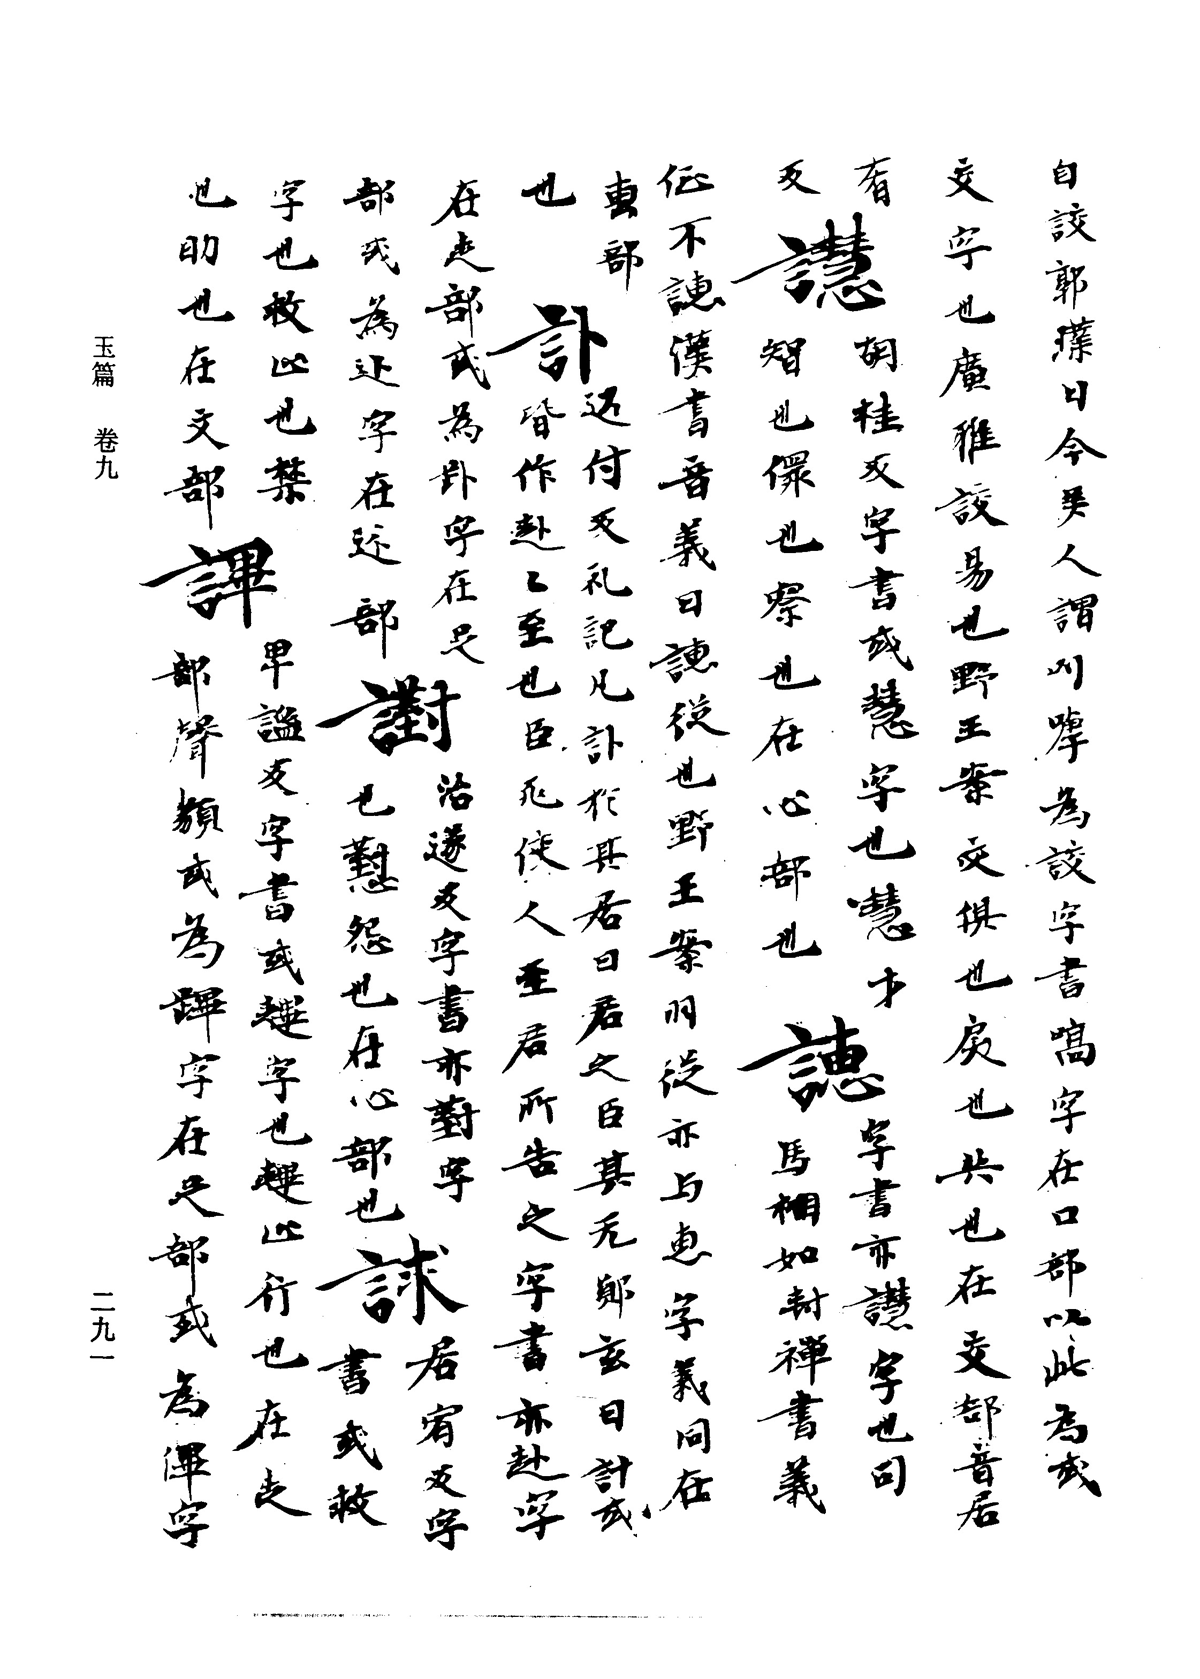 自詨郭璞曰今吴人謂叫嘷為詨字書嗃字在口部以此為或
交字也廣雅詨易也野王案交俱也戾也共也在交部音居
有
反
譿
胡桂反字書或慧字也慧才
智也儇也察也在心部也
譓
字書亦譿字也司
馬相如封禪書義
征不譓漢書音義曰譓從也野王案明從亦与惠字義同在
叀部
也
訃
迋付反礼記凡訃於其居曰君之臣某死鄭玄曰訃或
皆作赴赴至也臣死使人至君所告之字書亦赴字
在走部或為卦字在足
部或為辻字在辵部
譵
治遂反字書亦懟字
也懟怨也在心部也
訹
居宥反字
書或救
字也救止也禁
也助也在攴部
譂
畢謐反字書或趩字也趩止行也在走
部聲類或為蹕字在足部或為僤字
玉篇 卷九
二九一